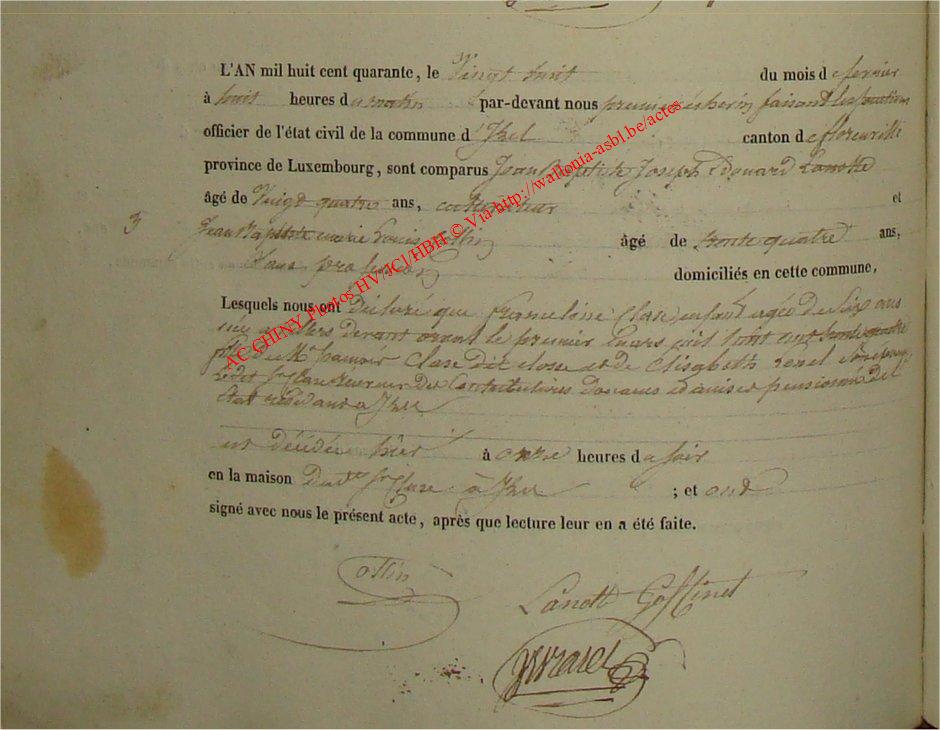 L'AN mil huit cent quarante, le Vingt huit du mois de fevrier
à huit heures du matin par-devant nous premier échevin faisant les fonctions
officier de l'état civil de la commune d'Izel canton de florenville
province de Luxembourg, sont comparus Jean Baptiste Joseph Edouard
âgé de Vingt quatre ans, cultivateur et
3 Jean Baptiste Louis âgé de trente quatre ans,
Sans profession domiciliés en cette commune,
Lesquels nous ont Déclaré que Clase, enfant agée de Six ans
née à devant avant le premier
fille de Mr françois Clase Dit close et de Elisabeth
ledit Sr Clase Receveur des Contributions Douanes et accises pensionné de l'
état résidant à Izel
est décédée hier à onze heures du soir
en la maison Dudit Sr Clase à Izel ; et ont
signé avec nous le présent acte, après que lecture leur en a été faite.
ollin
Lanott Goffinet
AC CHINY Photos HV/JCl/HBH © Via http://wallonia-asbl.be/actes